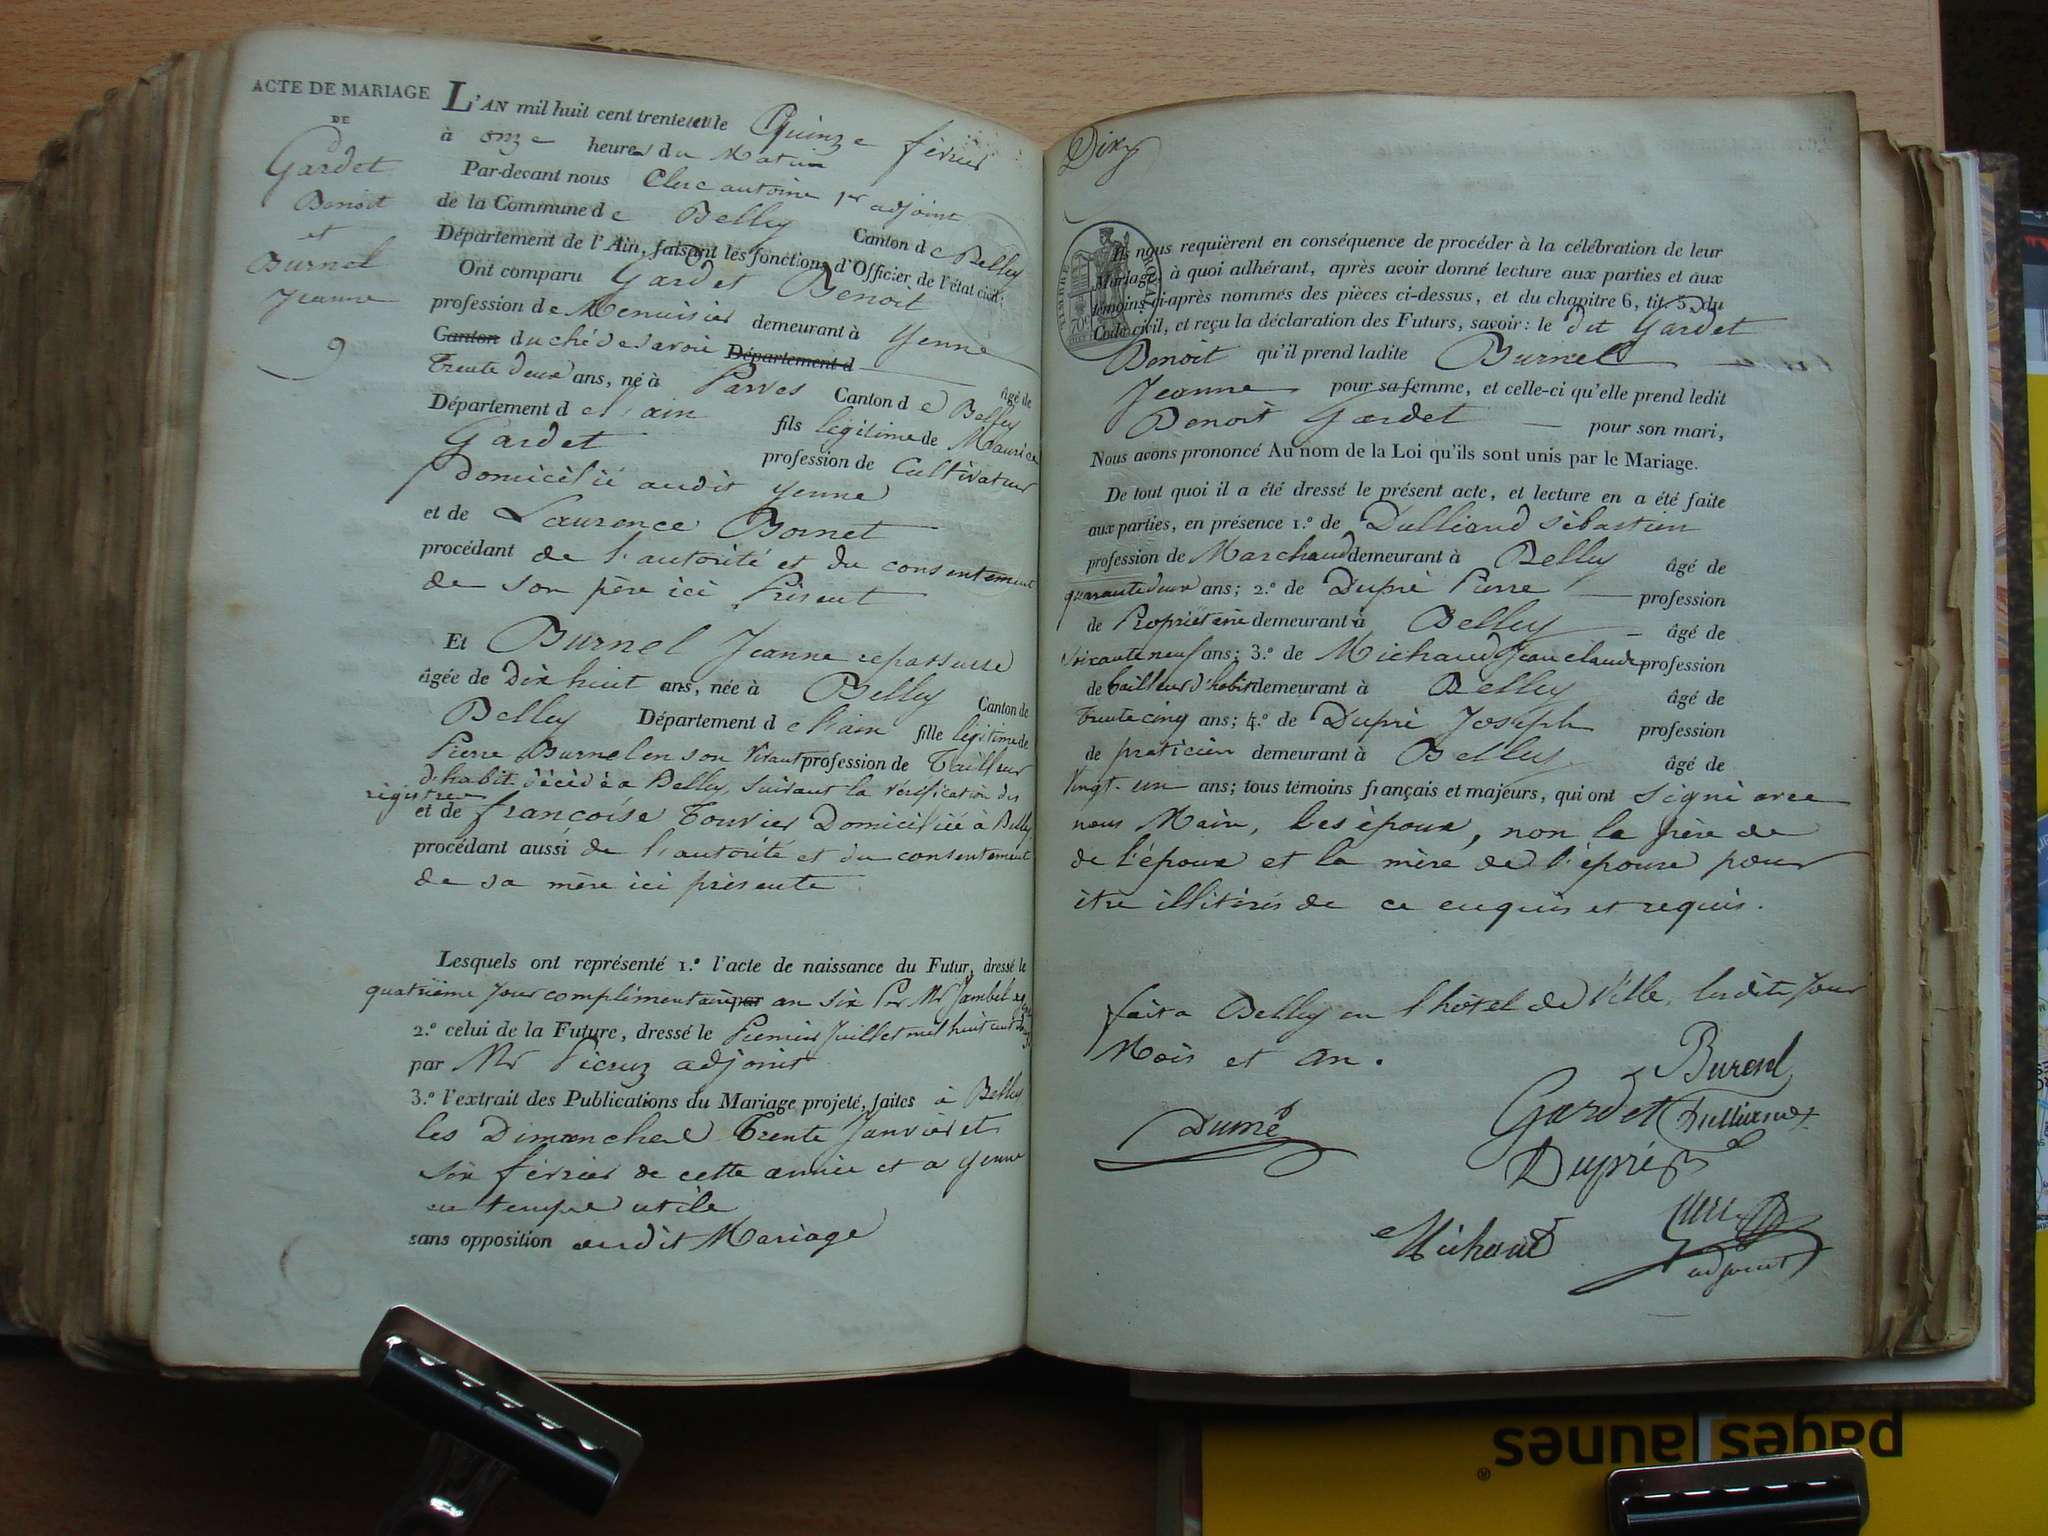 ACTE DE MARIAGE
DE
Gardet
Benoit
et
Burnel
Jeanne
9
L'AN mil huit cent trente et un le Quinze février
à onze heures du Matin
Par-devant nous Clerc antoine 1er adjoint
de la Commune de Belley Canton de Belley
Département de l'Ain, faisant les fonctions d'Officier de l'état civil;
Ont comparu Gardet Benoit
profession de Menuisier demeurant à Yenne
Canton duché de Savoie Département d âgé de
trente deux ans, né à Parves Canton de Belley
Département de l'ain fils légitime de Maurice
Gardet profession de Cultivateur
Domicilié audit yenne
et de Laurence Bornet
procédant de l'autorité et du consentement
de son père ici Présent
Et Burnel Jeanne repasseuse
âgée de Dix huit ans, née à Belley Canton de
Belley Département de l'ain fille légitime de
Pierre Burnel en son Vivant profession de Tailleur
d'habit décédé a Belley, suivant la vérification des
registres
et de françoise Touvier Domiciliée à Belley
procédant aussi de l'autorité et du consentement
de sa mère ici présente
Lesquels ont représenté 1.º l'acte de naissance du Futur, dressé le
quatrième Jour complémentaire par an six Par Mr Jambel
2.º celui de la Future, dressé le Premier Juillet mil huit cent
par Mr Picruz adjoint
3.º l'extrait des Publications du Mariage projeté, faites à Belley
les Dimanches Trente Janvier et
Six février de cette année et a yenne
en temps utile
sans opposition audit Mariage
Dix
TIMBRE ROYAL
70c
Ils nous requièrent en conséquence de procéder à la célébration de leur
Mariage; à quoi adhérant, après avoir donné lecture aux parties et aux
témoins ci-après nommés des pièces ci-dessus, et du chapitre 6, tit. 5, du
Code civil, et reçu la déclaration des Futurs, savoir: le dit Gardet
Benoit qu'il prend ladite Burnel
Jeanne pour sa femme, et celle-ci qu'elle prend ledit
Benoit Gardet pour son mari,
Nous avons prononcé Au nom de la Loi qu'ils sont unis par le Mariage.
De tout quoi il a été dressé le présent acte, et lecture en a été faite
aux parties, en présence 1.º de Dulliand Sébastien
profession de Marchand demeurant à Belley âgé de
quarante deux ans; 2.º de Dupré Pierre profession
de Propriétaire demeurant à Belley âgé de
soixante neuf ans; 3.º de Michaud Jean claude profession
de tailleur d'habits demeurant à Belley âgé de
trente cinq ans; 4.º de Dupré Joseph profession
de praticien demeurant à Belley âgé de
Vingt-un ans; tous témoins français et majeurs, qui ont signé avec
nous Maire, Les époux, non le père de
de l'époux et la mère de l'épouse pour
être illitérés de ce enquis et requis.
fait a Belley en l'hôtel de Ville, lesdits Jour
Mois et an.
Burnel
Gardet Dulliand
Dupré
Dupré
Michaud
Clerc
adjoint
pages jaunes®